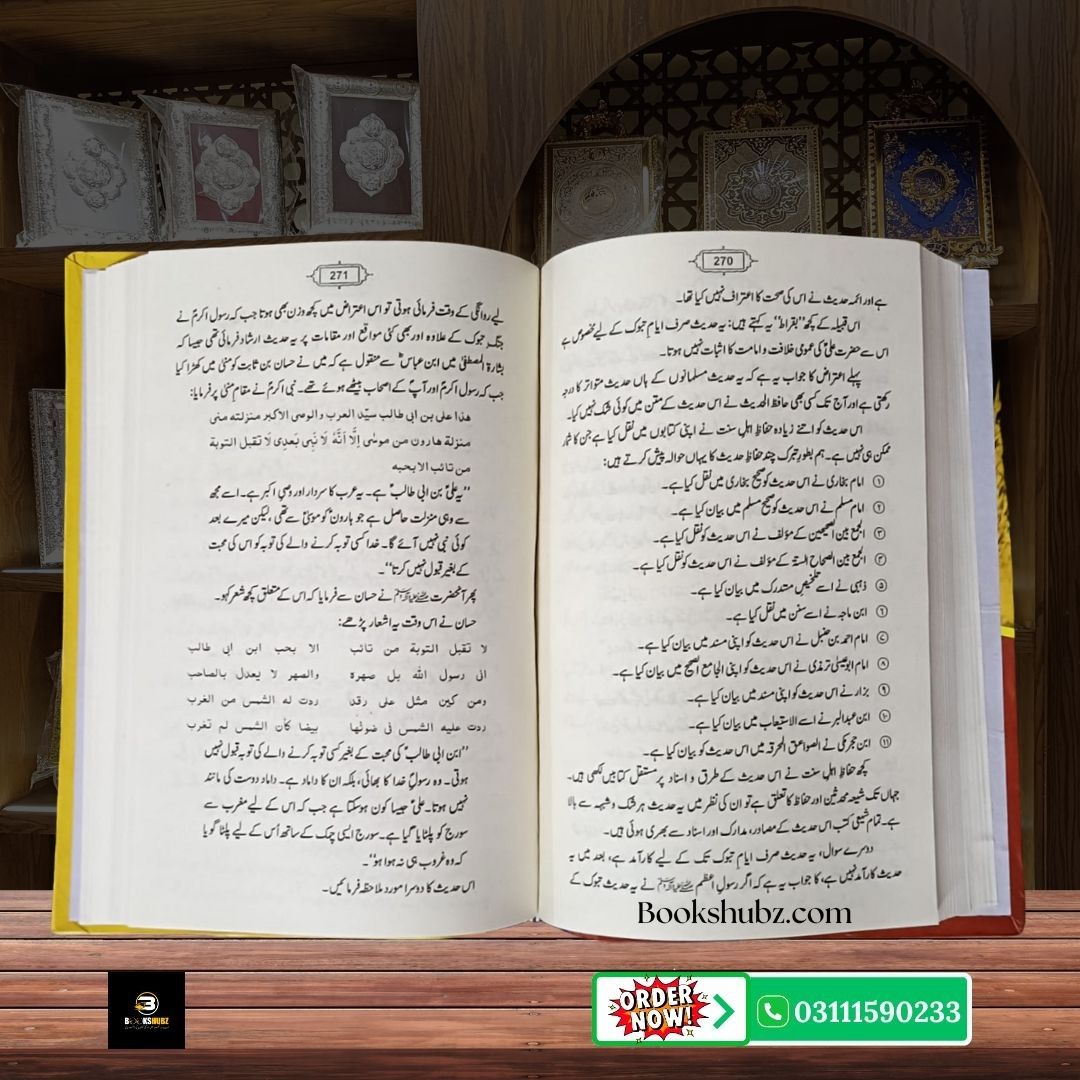 270
ہے اور ائمہ حدیث نے اس کی صحت کا اعتراف نہیں کیا تھا۔
اس قبیلہ کے کچھ ”بقراط“ یہ کہتے ہیں: یہ حدیث صرف ایامِ تبوک کے لیے مخصوص ہے
اس سے حضرت علیؑ کی عمومی خلافت و امامت کا اثبات نہیں ہوتا۔
پہلے اعتراض کا جواب یہ ہے کہ یہ حدیث مسلمانوں کے ہاں حدیث متواتر کا درجہ
رکھتی ہے اور آج تک کسی بھی حافظ الحدیث نے اس حدیث کے متن میں کوئی شک نہیں کیا۔
اس حدیث کو اتنے زیادہ حفاظِ اہلِ سنت نے اپنی کتابوں میں نقل کیا ہے جن کا شمار
ممکن ہی نہیں ہے۔ ہم بطورِ تبرک چند حفاظِ حدیث کا یہاں حوالہ پیش کرتے ہیں:
① امام بخاری نے اس حدیث کو صحیح بخاری میں نقل کیا ہے۔
② امام مسلم نے اس حدیث کو صحیح مسلم میں بیان کیا ہے۔
③ الجمع بین الصحیحین کے مؤلف نے اس حدیث کو نقل کیا ہے۔
④ الجمع بین الصحاح الستۃ کے مؤلف نے اس حدیث کو نقل کیا ہے۔
⑤ ذہبی نے اسے تلخیصِ مستدرک میں بیان کیا ہے۔
⑥ ابن ماجہ نے اسے سنن میں نقل کیا ہے۔
⑦ امام احمد بن حنبل نے اس حدیث کو اپنی مسند میں بیان کیا ہے۔
⑧ امام ابوعیسیٰ ترمذی نے اس حدیث کو اپنی الجامع الصحیح میں بیان کیا ہے۔
⑨ بزار نے اس حدیث کو اپنی مسند میں بیان کیا ہے۔
⑩ ابن عبدالبر نے اسے الاستیعاب میں بیان کیا ہے۔
⑪ ابن حجر مکی نے الصواعق المحرقہ میں اس حدیث کو بیان کیا ہے۔
کچھ حفاظِ اہلِ سنت نے اس حدیث کے طرق و اسناد پر مستقل کتابیں لکھی ہیں۔
جہاں تک شیعہ محدثین اور حفاظ کا تعلق ہے تو ان کی نظر میں یہ حدیث ہر شک و شبہ سے بالا
ہے۔ تمام شیعی کتب اس حدیث کے مصادر، مدارک اور اسناد سے بھری ہوئی ہیں۔
دوسرے سوال، یہ حدیث صرف ایامِ تبوک تک کے لیے کارآمد ہے، بعد میں یہ
حدیث کارآمد نہیں ہے، کا جواب یہ ہے کہ اگر رسولِ اعظم ﷺ نے یہ حدیث تبوک کے
271
لیے روانگی کے وقت فرمائی ہوتی تو اس اعتراض میں کچھ وزن بھی ہوتا جب کہ رسول اکرمؐ نے
جنگِ تبوک کے علاوہ اور بھی کئی مواقع اور مقامات پر یہ حدیث ارشاد فرمائی تھی جیسا کہ
بشارۃ المصطفیٰ میں ابن عباسؓ سے منقول ہے کہ میں نے حسان بن ثابت کو منیٰ میں کھڑا کیا
جب کہ رسول اکرمؐ اور آپؐ کے اصحاب بیٹھے ہوئے تھے۔ نبی اکرمؐ نے مقامِ منیٰ پر فرمایا:
هذا علی بن ابی طالب سیّد العرب والوصی الاکبر منزلته منی
منزلة هارون من موسٰی اِلَّا اَنَّهٗ لَا نَبِّی بَعدِی لَا تقبل التوبة
من تائب الا بحبه
”یہ علیؑ بن ابی طالبؑ ہے۔ یہ عرب کا سردار اور وصی اکبر ہے۔ اسے مجھ
سے وہی منزلت حاصل ہے جو ہارونؑ کو موسیٰؑ سے تھی، لیکن میرے بعد
کوئی نبی نہیں آئے گا۔ خدا کسی توبہ کرنے والے کی توبہ کو اس کی محبت
کے بغیر قبول نہیں کرتا“۔
پھر آنحضرت ﷺ نے حسان سے فرمایا کہ اس کے متعلق کچھ شعر کہو۔
حسان نے اس وقت یہ اشعار پڑھے:
لا تقبل التوبة من تائب الا بحب ابن ابی طالب
اخی رسول الله بل صهره والصهر لا یعدل بالصاحب
ومن کین مثل علی رقد ردت له الشمس من الغرب
ردت علیه الشمس فی ضوئها بیضا کأن الشمس لم تغرب
”ابن ابی طالبؑ کی محبت کے بغیر کسی توبہ کرنے والے کی توبہ قبول نہیں
ہوتی۔ وہ رسولِ خدا کا بھائی، بلکہ ان کا داماد ہے۔ داماد دوست کی مانند
نہیں ہوتا۔ علیؑ جیسا کون ہوسکتا ہے جب کہ اس کے لیے مغرب سے
سورج کو پلٹایا گیا ہے۔ سورج ایسی چمک کے ساتھ اُس کے لیے پلٹا گویا
کہ وہ غروب ہی نہ ہوا ہو“۔
اس حدیث کا دوسرا مورد ملاحظہ فرمائیں۔
Bookshubz.com
BOOKSHUBZ
ORDER NOW!
03111590233